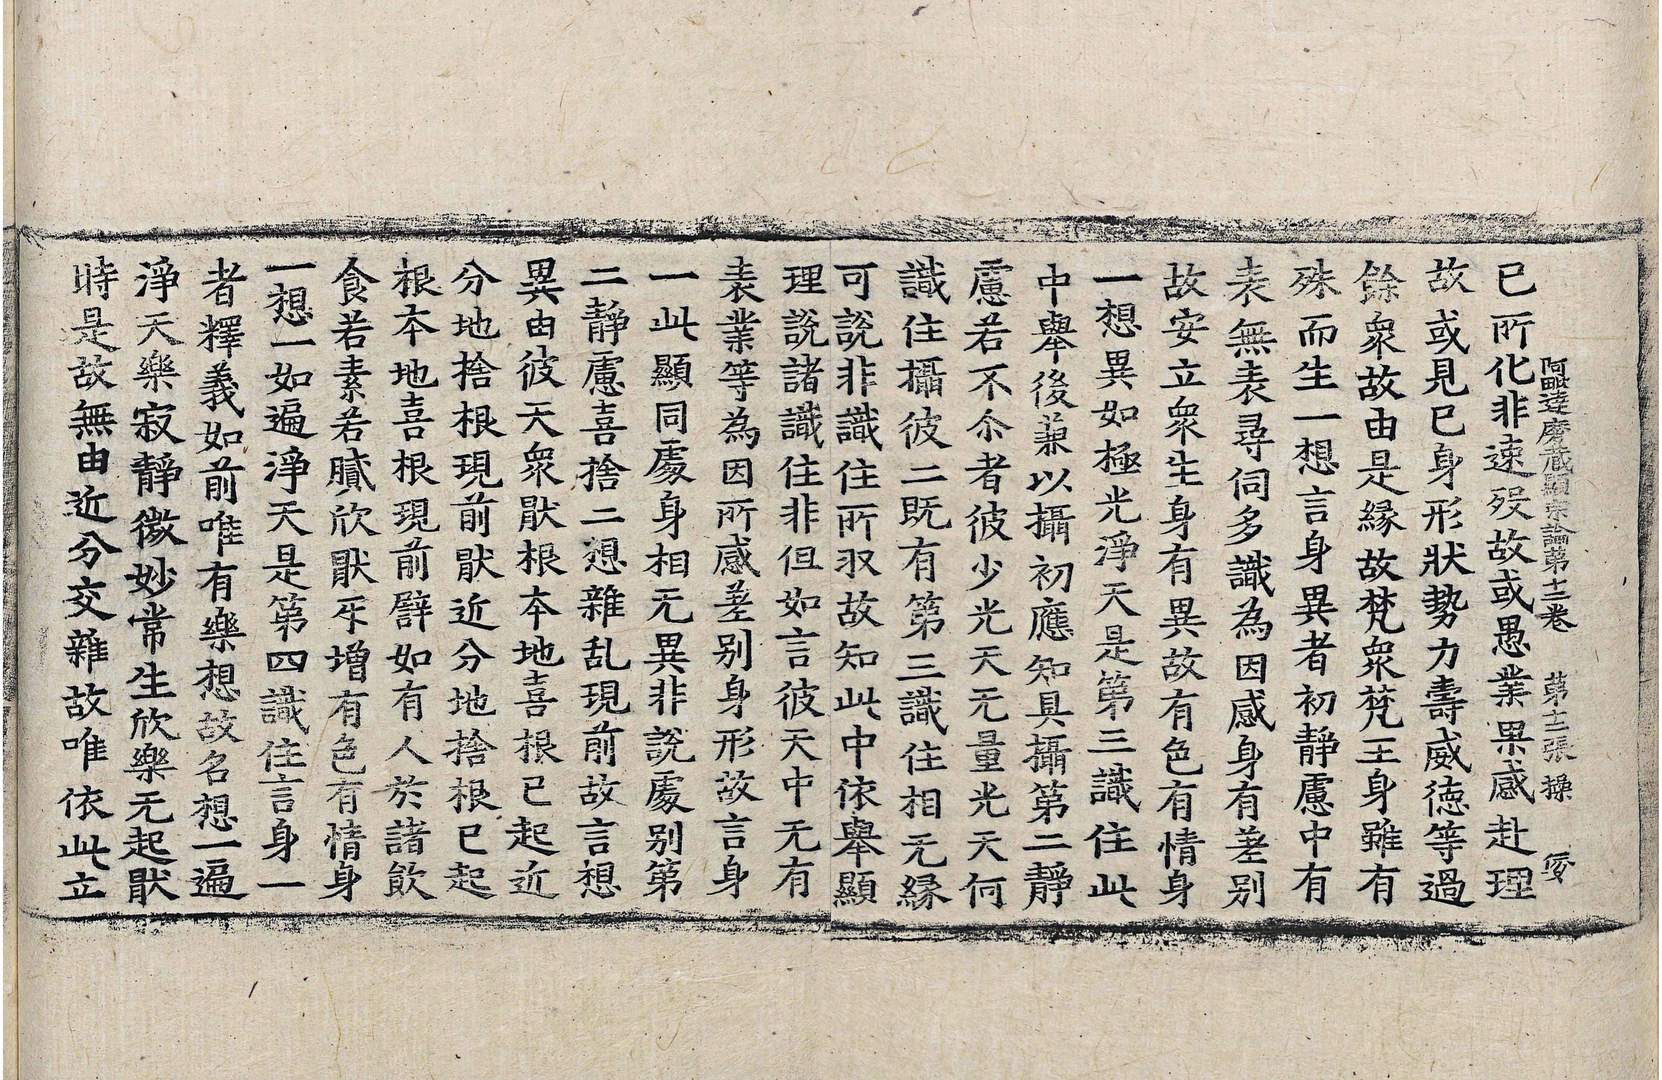 阿毗達磨藏顯宗論第十二卷 第十二張 操
已所化非速歿故或愚業果感赴理
故或見已身形狀勢力壽威德等過
餘衆故由是緣故梵衆梵王身雖有
殊而生一想言身異者初靜慮中有
表無表尋伺多識為因感身有差别
故安立衆生身有異故有色有情身
一想異如極光淨天是第三識住此
中舉後兼以攝初應知具攝第二靜
慮若不尒者彼少光天无量光天何
識住攝彼二既有第三識住相无緣
可說非識住所収故知此中依舉顯
理說諸識住非但如言彼天中无有
表業等為因所感差别身形故言身
一此顯同處身相无異非說處别第
二靜慮喜捨二想雜乱現前故言想
異由彼天衆猒根本地喜根已起近
分地捨根現前猒近分地捨根已起
根本地喜根現前譬如有人於諸飲
食若素若膩欣猒牙增有色有情身
一想一如遍淨天是第四識住言身一
者釋義如前唯有樂想故名想一遍
淨天樂寂靜微妙常生欣樂无起猒
時是故無由近分交雜故唯依此立